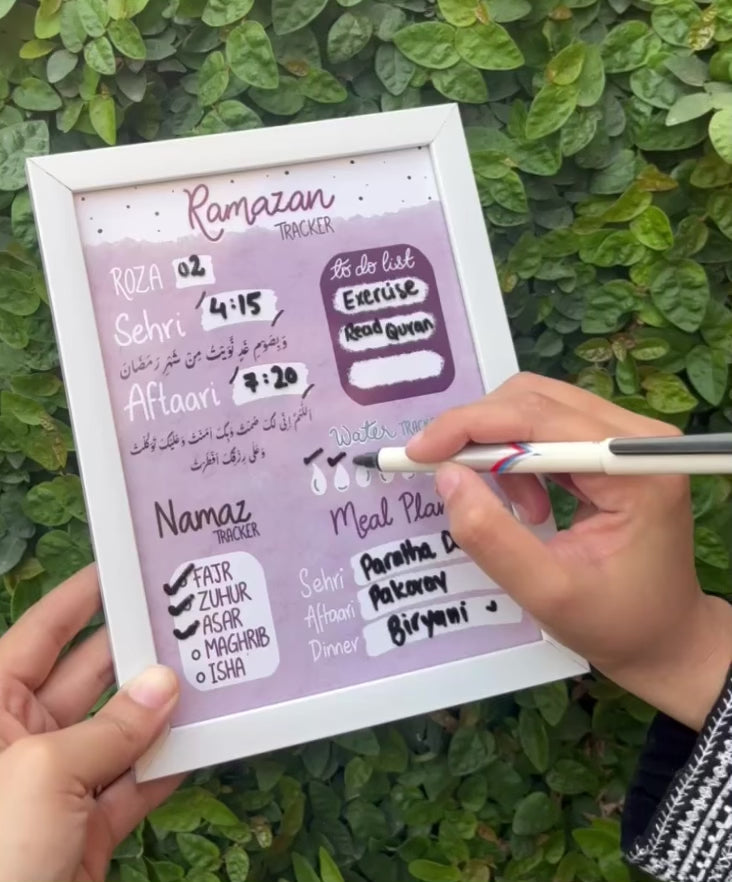 Ramazan
TRACKER
ROZA 02
Sehri 4:15
وَبِصَوْمِ غَدٍ نَّوَيْتُ مِنْ شَهْرِ رَمَضَانَ
Aftaari 7:20
اَللّٰهُمَّ اِنِّی لَکَ صُمْتُ وَبِکَ اٰمَنْتُ وَعَلَيْکَ تَوَکَّلْتُ
وَعَلٰی رِزْقِکَ اَفْطَرْتُ
to do list
Exercise
Read Quran
Water
Namaz
TRACKER
FAJR
ZUHUR
ASAR
MAGHRIB
ISHA
Meal
Sehri Paratha
Aftaari Pakoray
Dinner Biryani